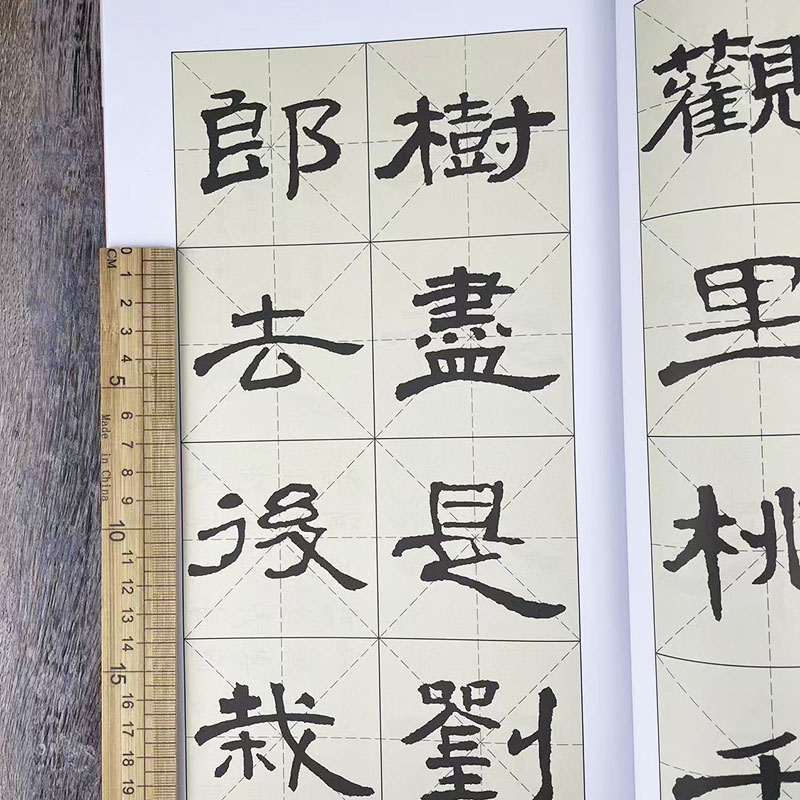 觀里桃千
樹盡是劉
郎去後栽
0 1 2 3 4 5 6 7 8 9 10 11 12 13 14 15 16 17 18 19
CM
Made in China